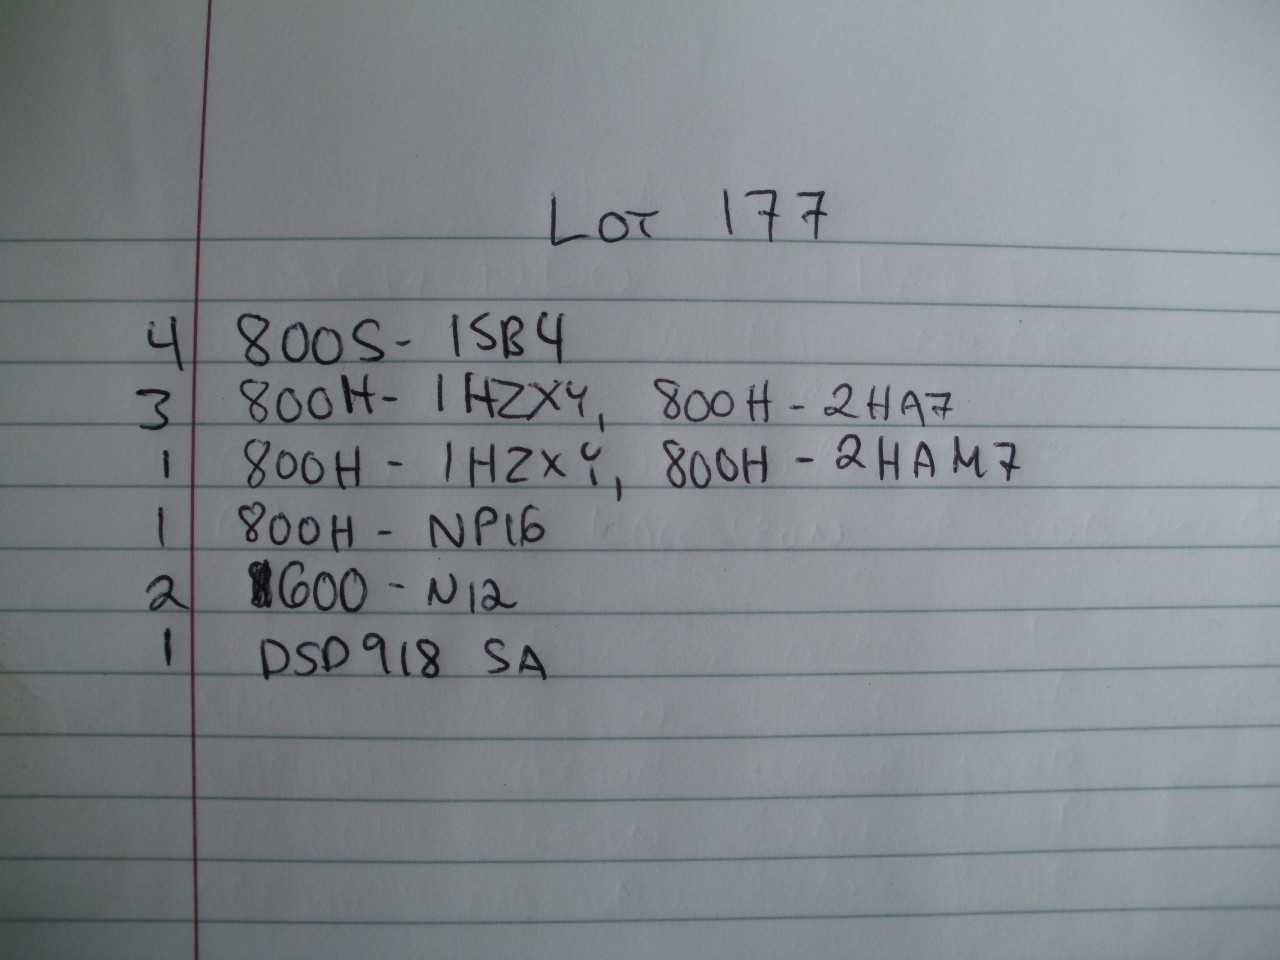 Lot 177
4 800S- 1SB4
3 800H- 1HZX4, 800H - 2HA7
1 800H - 1HZX4, 800H - 2HAM7
1 800H - NP16
2 600 - N12
1 DSD918 SA